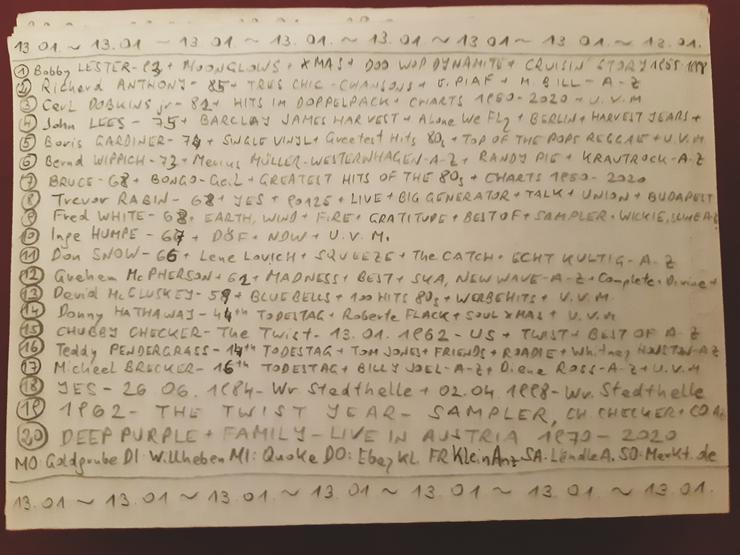 13.01. ~ 13.01 ~ 13.01 ~ 13.01. ~ 13.01. ~ 13.01. ~ 13.01.
① Bobby LESTER - 93 + MOONGLOWS + XMAS + DOO WOP DYNAMITE + CRUISIN' STORY 1955-
② Richard ANTHONY - 85 + TRES CHIC - CHANSONS + E. PIAF + M. BILL - A-Z
③ Carl DOBKINS jr - 82 + HITS IM DOPPELPACK + CHARTS 1950-2020 + U.V.M
④ John LEES - 75 + BARCLAY JAMES HARVEST + Alone We Fly + BERLIN + HARVEST YEARS +
⑤ Boris GARDINER - 79 + SINGLE VINYL + Greatest Hits 80s + TOP OF THE POPS REGGAE + U.V.M
⑥ Bernd WIPPICH - 73 + Marius MÜLLER-WESTERNHAGEN - A-Z + RANDY PIE + KRAUTROCK - A-Z
⑦ BRUCE - 68 + BONGO - + GREATEST HITS OF THE 80s + CHARTS 1950-2020
⑧ Trevor RABIN - 68 + YES + 90125 + LIVE + BIG GENERATOR + TALK + UNION + BUDAPEST
⑨ Fred WHITE - 68 + EARTH, WIND + FIRE + GRATITUDE + BEST OF + SAMPLER,
⑩ Inge HUMPE - 67 + DÖF + NDW + U.V.M.
⑪ Don SNOW - 66 + Lene Lovich + SQUEEZE + The CATCH + ECHT KULTIG - A-Z
⑫ Graham McPHERSON + 62 + MADNESS + BEST + SKA, NEW WAVE - A-Z + Complete Divine +
⑬ David McCLUSKEY - 59 + BLUEBELLS + 100 HITS 80s + WERBEHITS + U.V.M
⑭ Donny HATHAWAY - 44th TODESTAG + Roberta FLACK + SOUL XMAS + U.V.M
⑮ CHUBBY CHECKER - The Twist - 13.01.1962 - US + TWIST + BEST OF A-Z
⑯ Teddy PENDERGRASS - 14th TODESTAG + TOM JONES + FRIENDS + ROADIE + Whitney HOUSTON - A-Z
⑰ Michael BRECKER - 16th TODESTAG + BILLY JOEL - A-Z + Diana ROSS - A-Z + U.V.M
⑱ YES - 26.06.1984 - Wr. Stadthalle + 02.04.1998 - Wr. Stadthalle
⑲ 1962 - THE TWIST YEAR - SAMPLER, CH. CHECKER + CO
⑳ DEEP PURPLE + FAMILY - LIVE IN AUSTRIA 1970 - 2020
MO: Goldgrube DI: Willhaben MI: Quoka DO: Ebay KL. FR Klein Anz SA: Ländle A. SO: Markt.de
13.01 ~ 13.01 ~ 13.01 ~ 13.01 ~ 13.01 ~ 13.01. ~ 13.01.